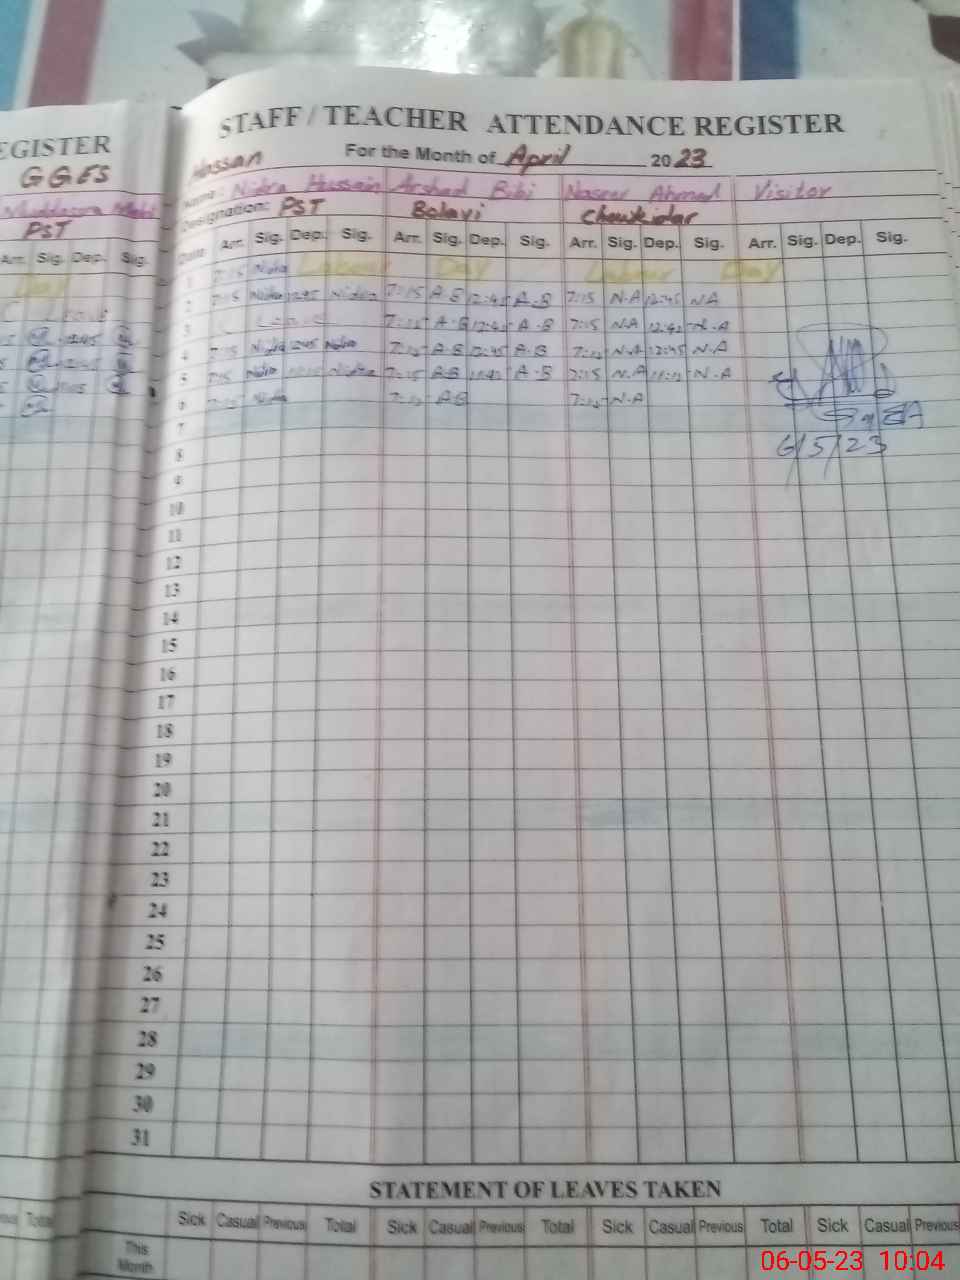 EGISTER
GGES
PST
Arr. Sig. Dep. Sig.
Day
STAFF / TEACHER ATTENDANCE REGISTER
For the Month of April 2023
Hassan
Name: Nidra Hussain Arshad Bibi Naseer Ahmad Visitor
Designation: PST Belavi Chowkidar
Date Arr. Sig. Dep. Sig. Arr. Sig. Dep. Sig. Arr. Sig. Dep. Sig. Arr. Sig. Dep. Sig.
1 7:15 Nidra Labour Day Labour Day
2 7:15 Nidra 12:45 Nidra 7:15 A-B 12:45 A-B 7:15 N-A 12:45 NA
3 Leave 7:15 A-B 12:45 A-B 7:15 NA 12:45 N-A
4 7:15 Nidra 12:45 Nidra 7:15 A-B 12:45 A-B 7:15 N-A 12:45 N-A
5 7:15 Nidra Nidra 7:15 AB A-B 7:15 N-A N-A
6 7:15 Nidra 7:15 AB 7:15 N-A
6/5/23
7
8
9
10
11
12
13
14
15
16
17
18
19
20
21
22
23
24
25
26
27
28
29
30
31
STATEMENT OF LEAVES TAKEN
Total Sick Casual Previous Total Sick Casual Previous Total Sick Casual Previous Total Sick Casual Previous
This
Month
06-05-23 10:04